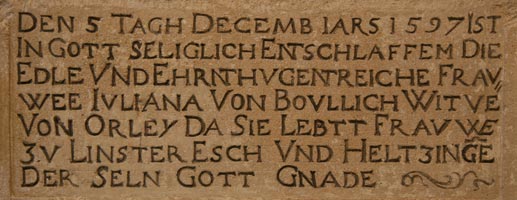 DEN 5 TAGH DECEMB IARS 1597 IST
IN GOTT SELIGLICH ENTSCHLAFFEM DIE
EDLE VND EHRNTHVGENTREICHE FRAV
WEE IVLIANA VON BOVLLICH WITVE
VON ORLEY DA SIE LEBTT FRAVWE
ZV LINSTER ESCH VND HELTZINGE
DER SELN GOTT GNADE